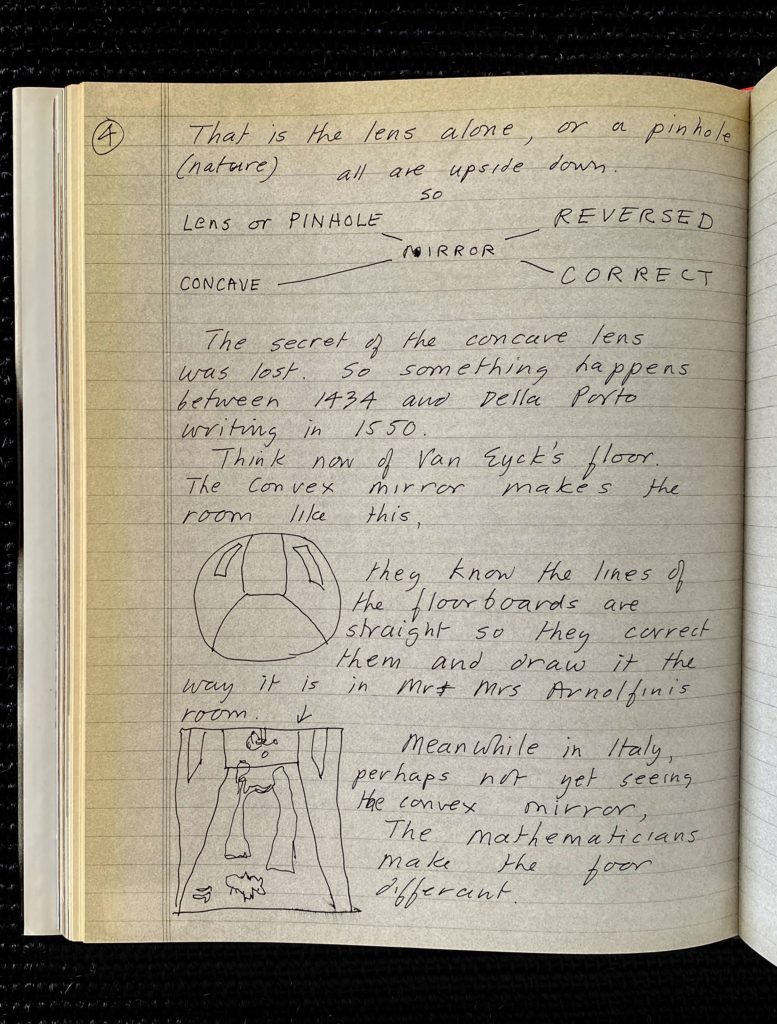 4
That is the lens alone, or a pinhole
(nature) all are upside down.
so
Lens or PINHOLE
REVERSED
MIRROR
CONCAVE
CORRECT
The secret of the concave lens
was lost. So something happens
between 1434 and Della Porto
writing in 1550.
Think now of Van Eyck's floor.
The convex mirror makes the
room like this,
they know the lines of
the floorboards are
straight so they correct
them and draw it the
way it is in Mr & Mrs Arnolfinis
room.
Meanwhile in Italy,
perhaps not yet seeing
the convex mirror,
The mathematicians
make the foor
differant.